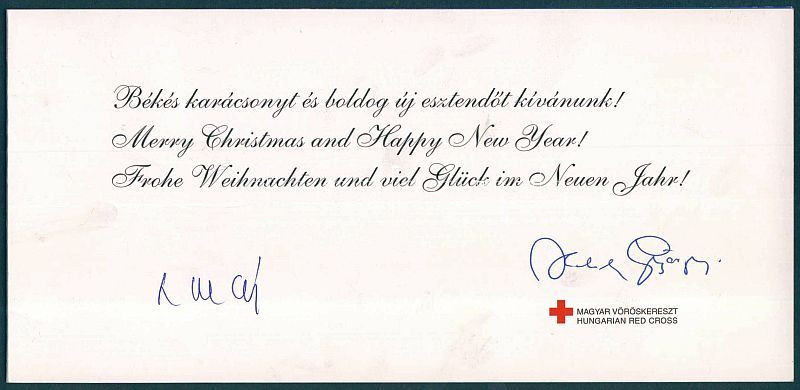 Békés karácsonyt és boldog új esztendőt kívánunk!
Merry Christmas and Happy New Year!
Frohe Weihnachten und viel Glück im Neuen Jahr!
MAGYAR VÖRÖSKERESZT
HUNGARIAN RED CROSS